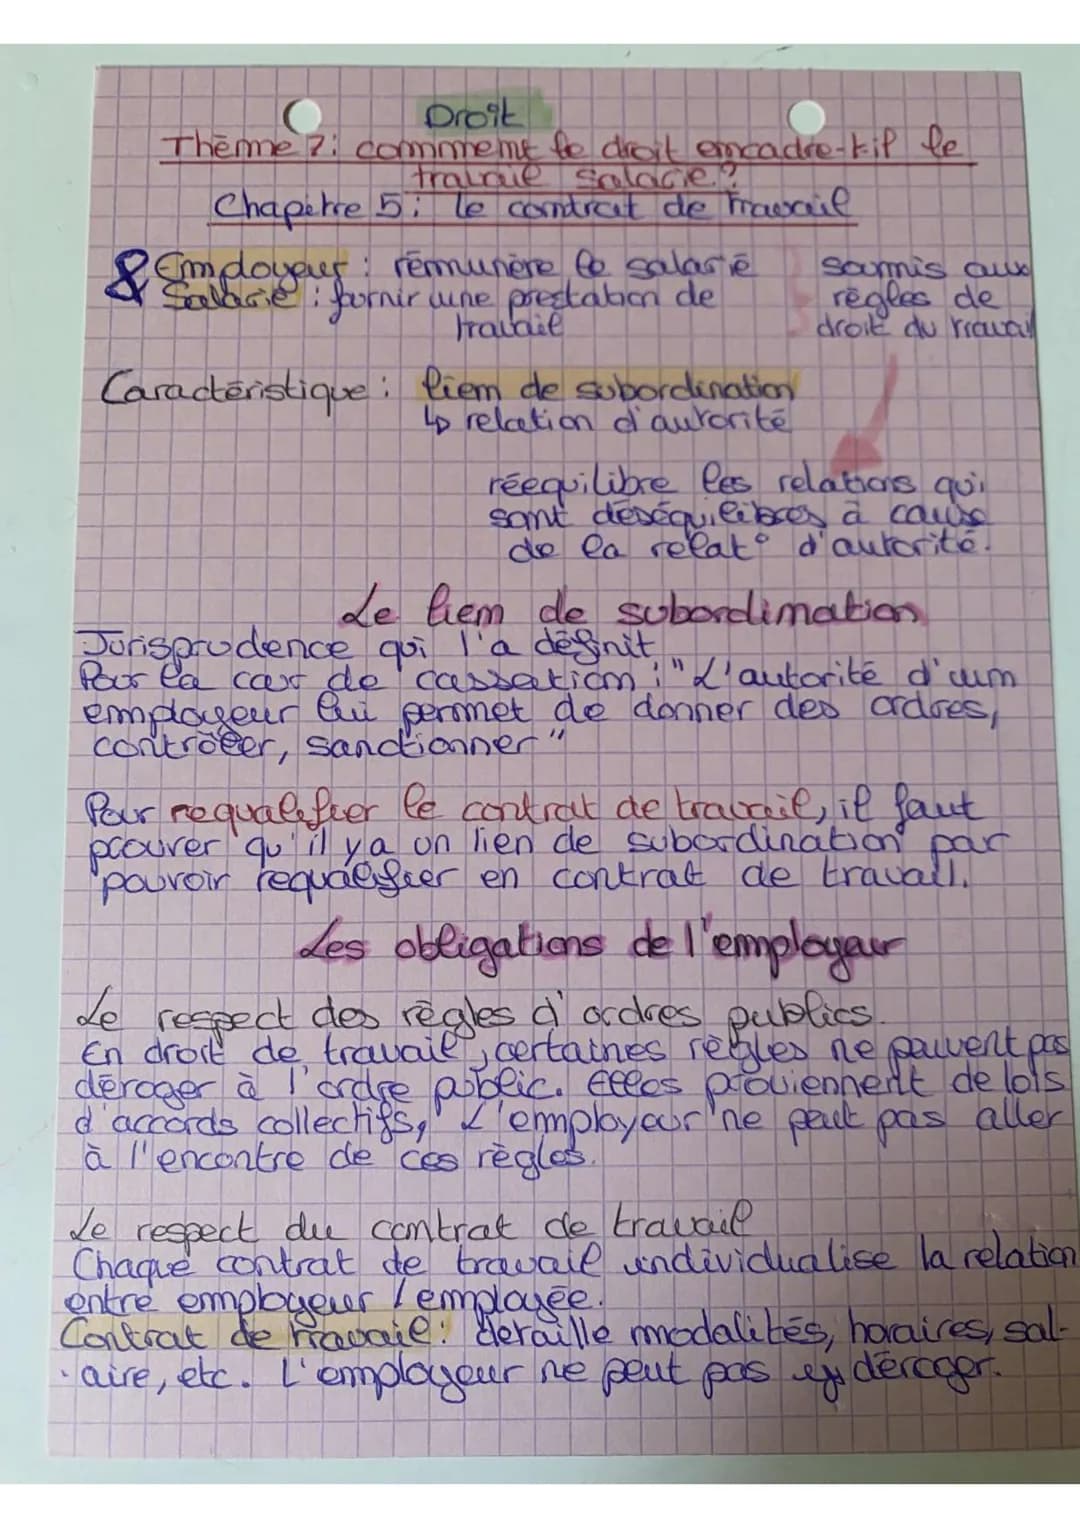 Droit
Thème 7: comment le droit encadre-t-il le
travail salarié?
Chapitre 5: le contrat de travail
& Employeur : rémunère le salarié
Salarié : fournir une prestation de
travail
soumis aux
règles de
droit du travail
Caractéristique : lien de subordination
↳ relation d'autorité
réequilibre les relations qui
sont déséquilibrées à cause
de la relat° d'autorité.
Le lien de subordination
Jurisprudence qui l'a définit
Pour la cour de cassation : "L'autorité d'un
employeur lui permet de donner des ordres,
contrôler, sanctionner"
Pour requalifier le contrat de travail, il faut
prouver qu'il y a un lien de subordination par
pouvoir requalifier en contrat de travail.
Les obligations de l'employeur
Le respect des règles d'ordres publics.
En droit de travail, certaines règles ne peuvent pas
déroger à l'ordre public. Elles proviennent de lois
d'accords collectifs, L'employeur ne peut pas aller
à l'encontre de ces règles.
Le respect du contrat de travail
Chaque contrat de travail individualise la relation
entre employeur / employée.
Contrat de travail: détaille modalités, horaires, sal-
aire, etc. L'employeur ne peut pas y déroger.